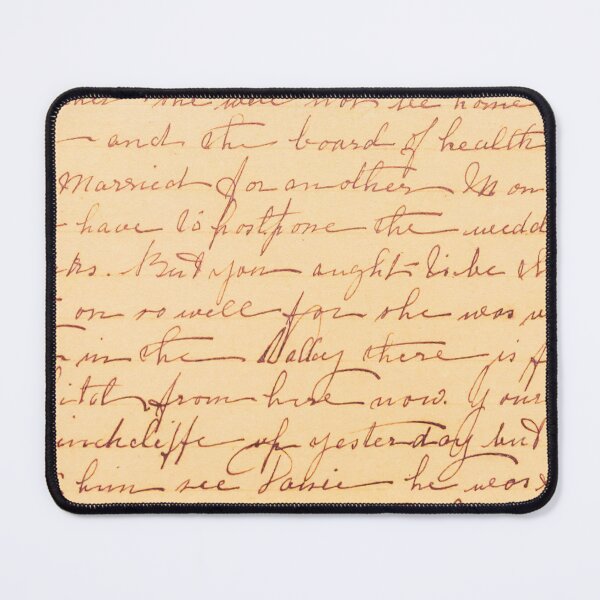 she will not see home
and the board of health
married for another Mon
have to postpone the wedd
ks. But you aught to be th
t on so well for she was v
in the Valley there is f
ital from here now. Your
inchcliffe up yesterday but
him see Daisie he was